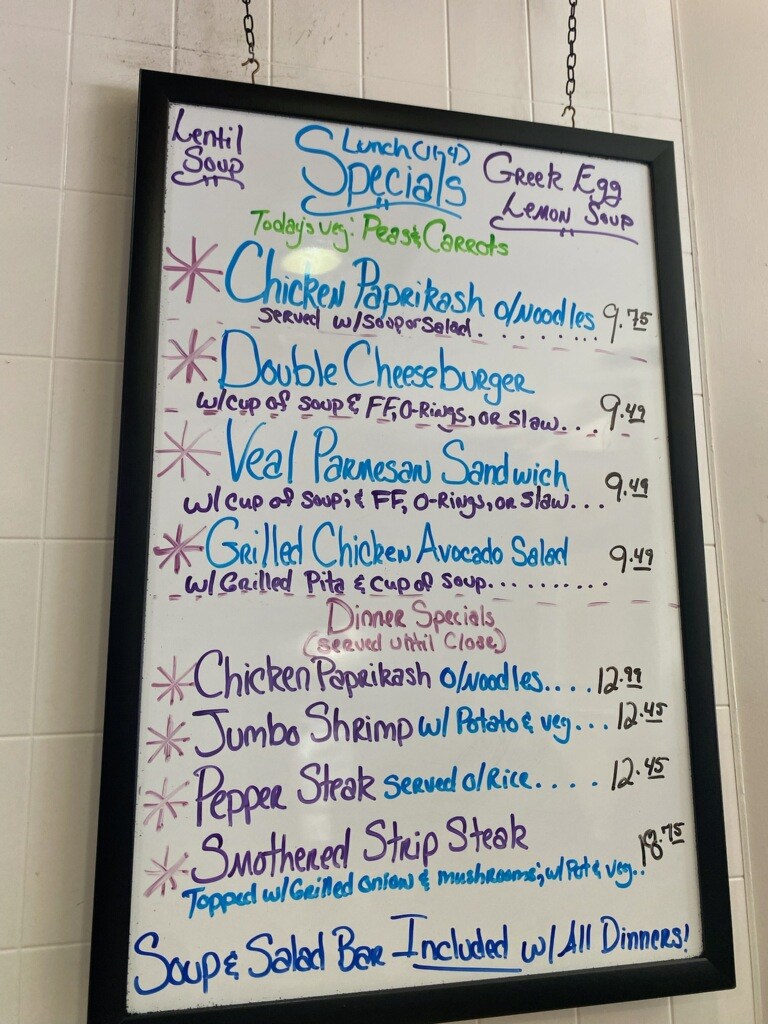 Lentil Soup
Lunch (11-4) Specials
Greek Egg Lemon Soup
Today's veg: Peas & Carrots
Chicken Paprikash o/Noodles 9.75
served w/Soup or Salad.........
Double Cheeseburger
w/cup of soup & FF, O-Rings, or Slaw... 9.49
Veal Parmesan Sandwich
w/ cup of soup; & FF, O-Rings, or Slaw... 9.49
Grilled Chicken Avocado Salad 9.49
w/ Grilled Pita & cup of soup..........
Dinner Specials
(served until Close)
Chicken Paprikash o/Noodles.... 12.99
Jumbo Shrimp w/ Potato & veg... 12.45
Pepper Steak served o/Rice.... 12.45
Smothered Strip Steak 18.75
Topped w/Grilled onion & mushrooms; w/ Pot & veg..
Soup & Salad Bar Included w/ All Dinners!